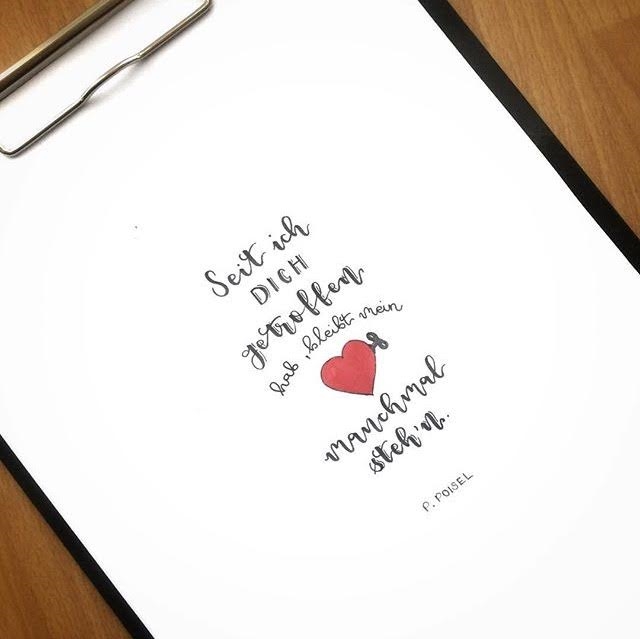 Seit ich
DICH
getroffen
hab, bleibt mein
manchmal
steh'n.
P. POISEL